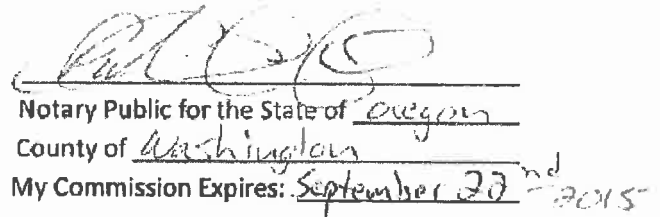 Notary Public for the State of Oregon
County of Washington
My Commission Expires: September 22nd 2015